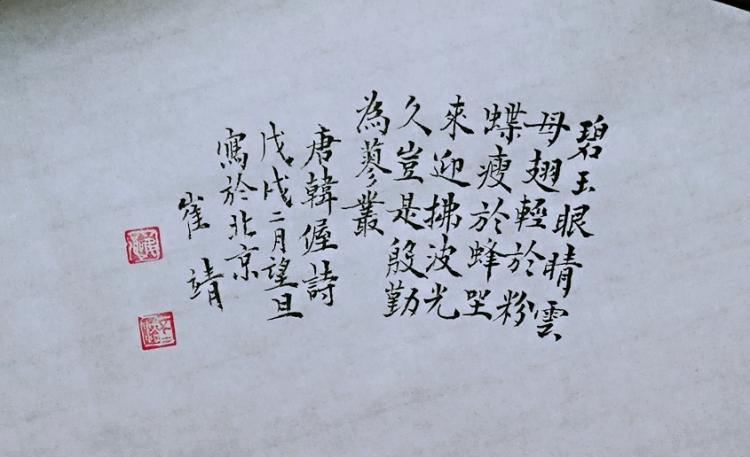 碧玉眼晴雲
母翅輕於粉
蝶瘦於蜂坐
來迎拂波光
久豈是殷勤
為蓼叢
唐韓偓詩
戊戌二月望旦
寫於北京
崔靖